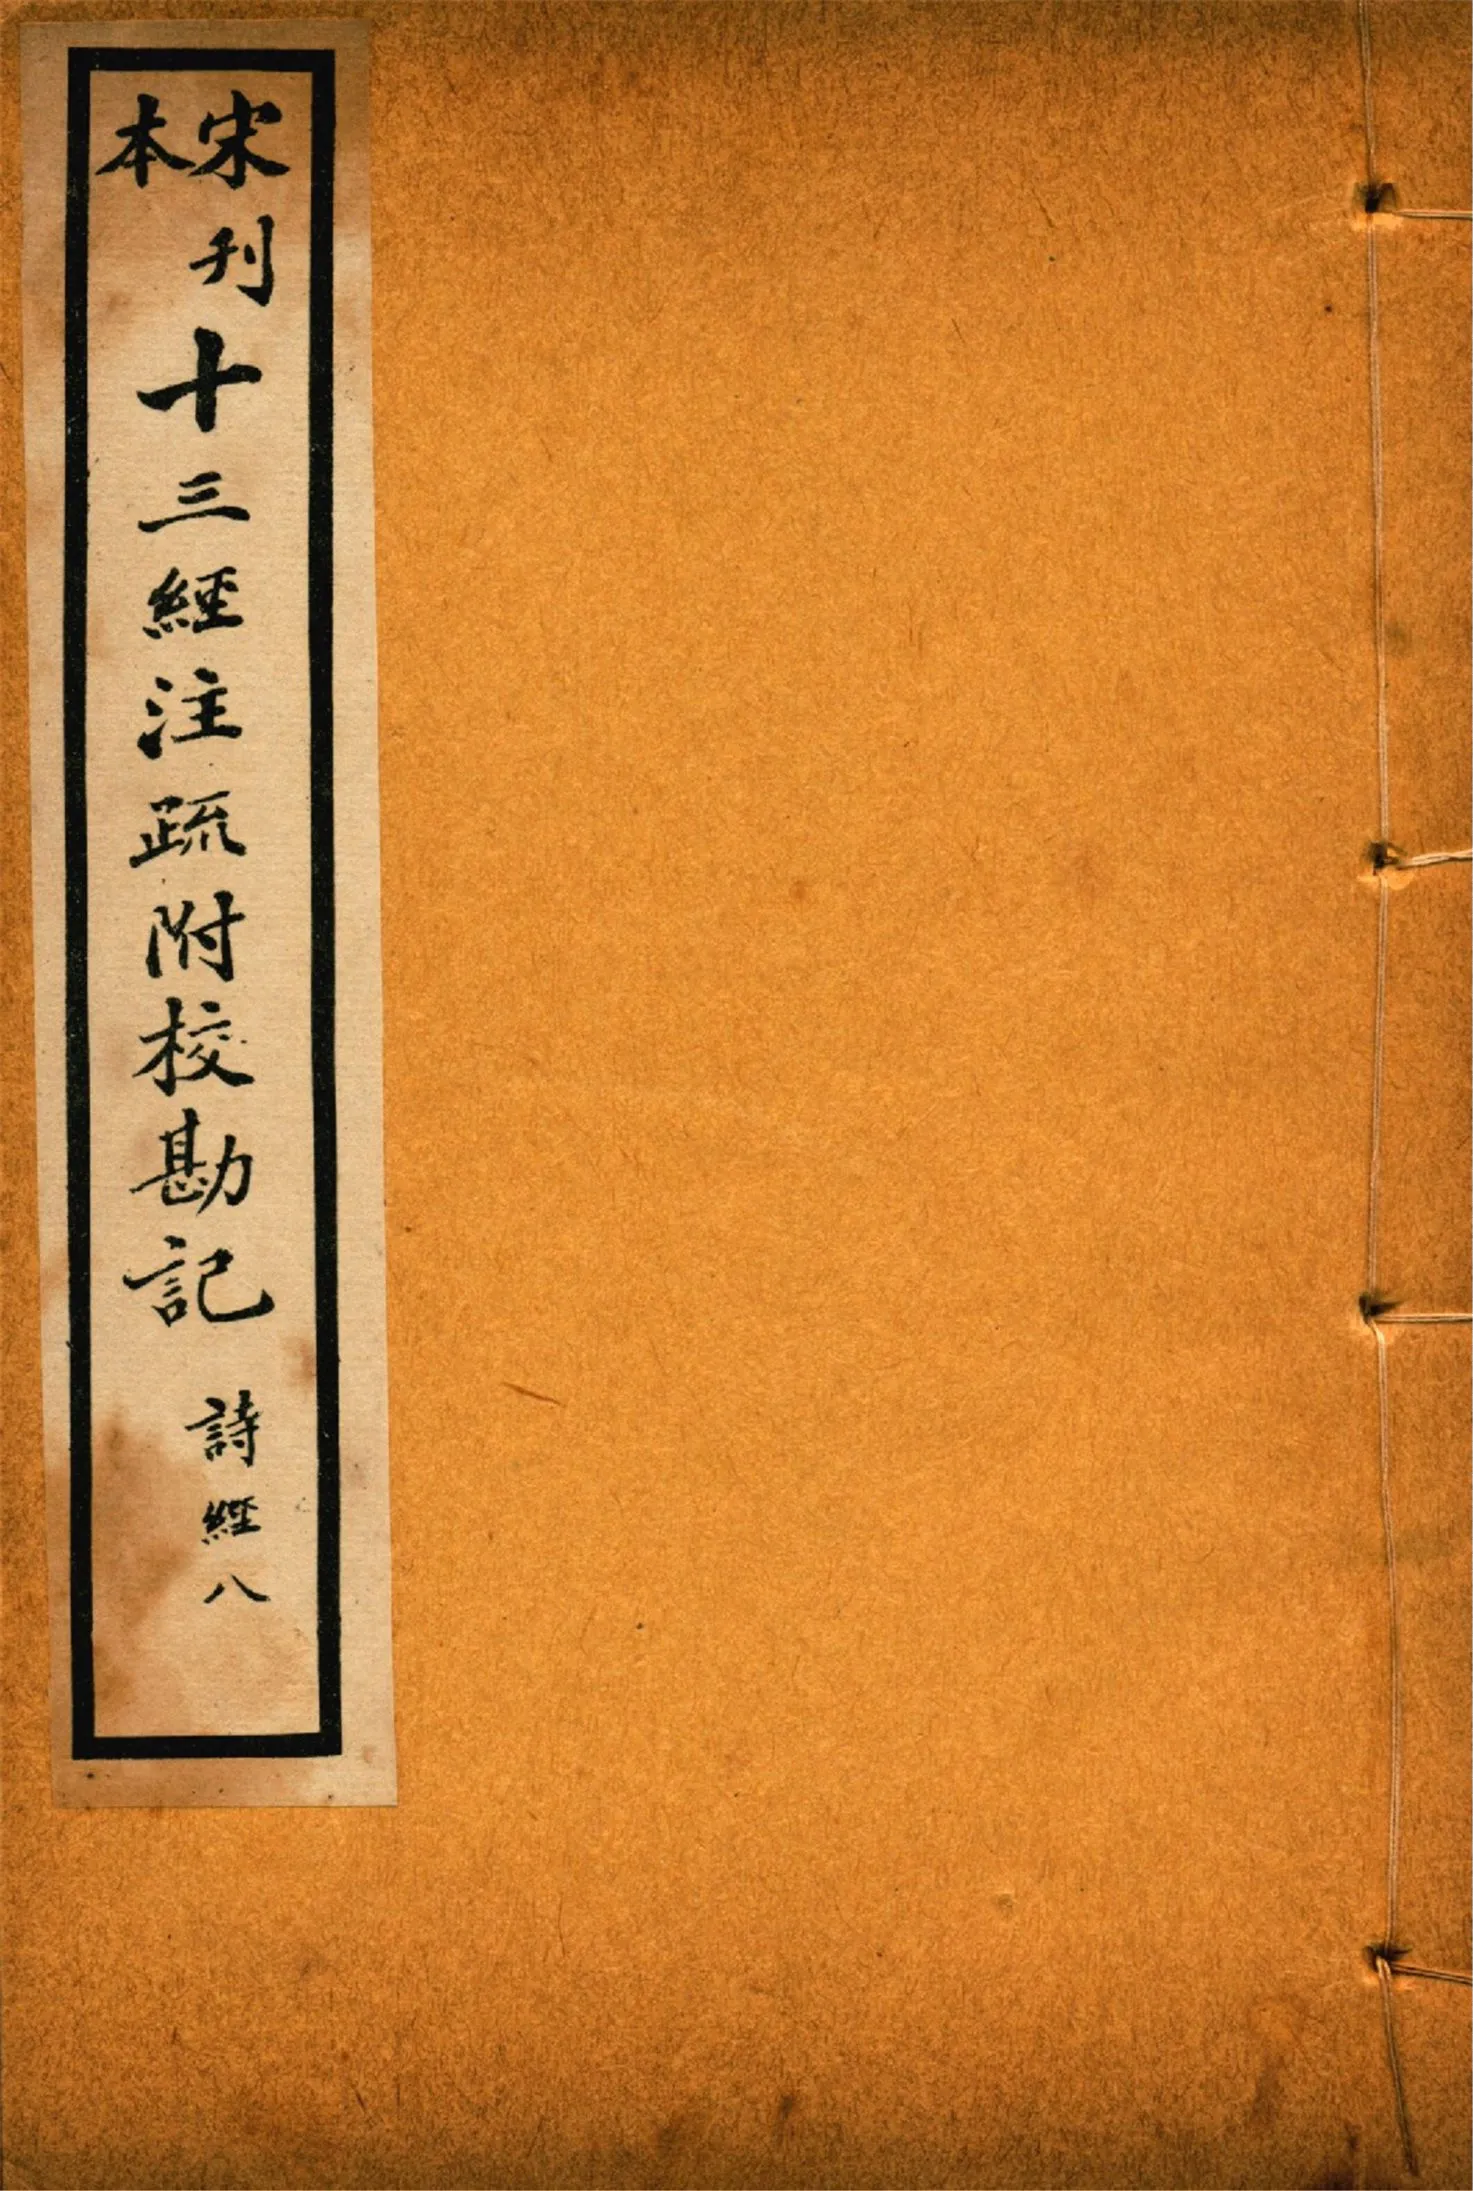 宋刊本十三經注疏附校勘記
詩經八